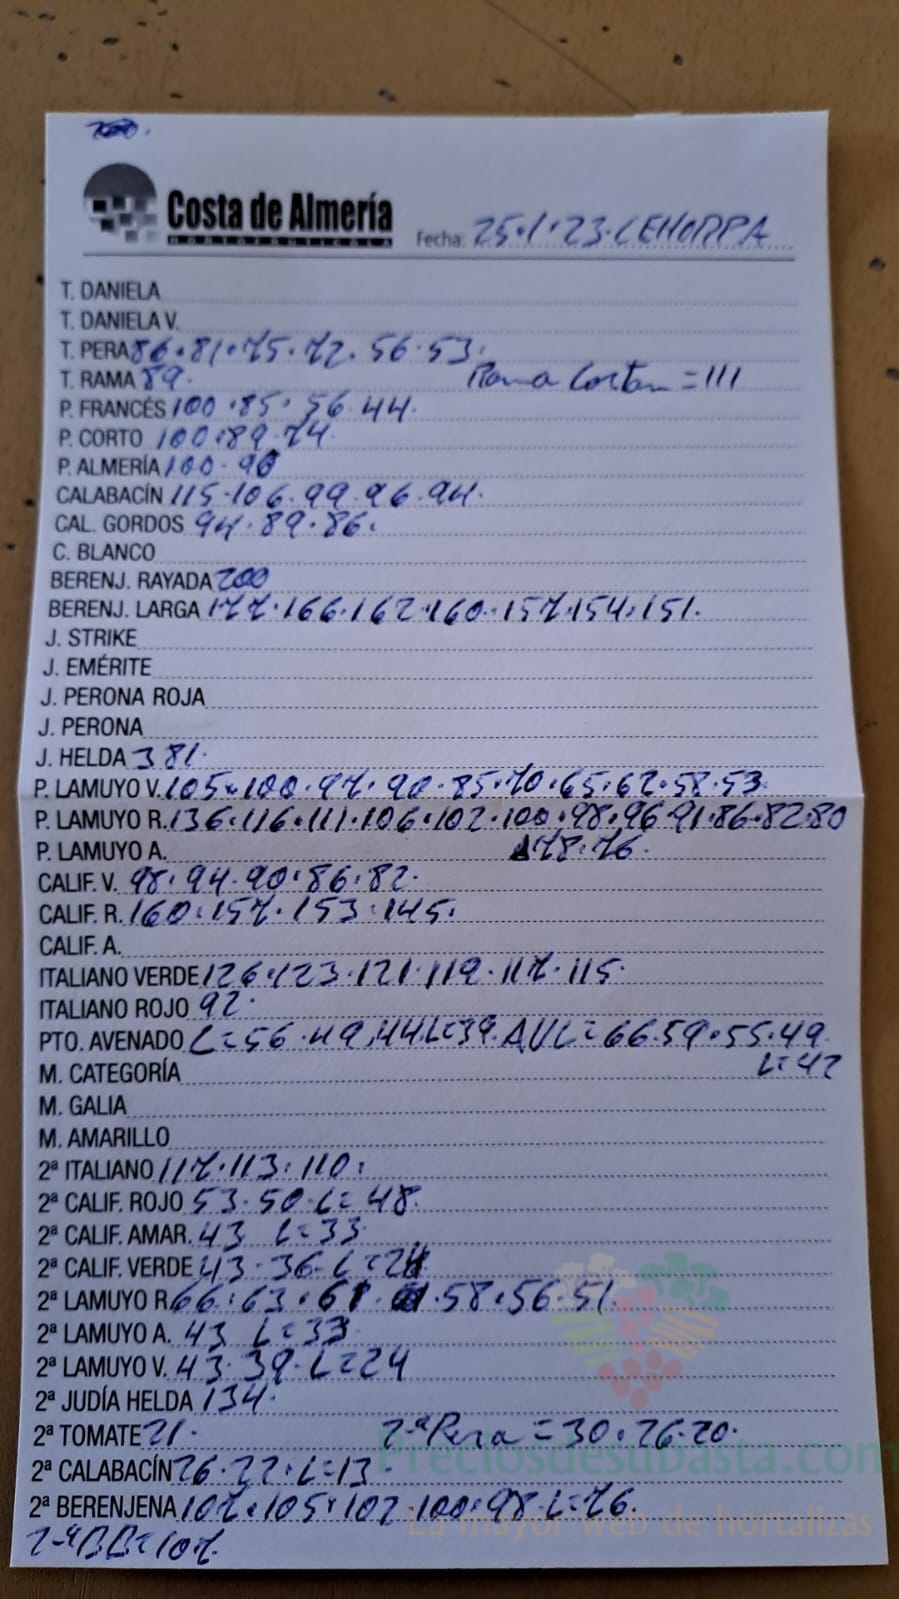 Costa de Almería
HORTOFRUTICOLA
Fecha: 25·1·23·CEHORPA
T. DANIELA
T. DANIELA V.
T. PERA 86·81·75·72·56·53.
T. RAMA 89. Rama Cortan=111
P. FRANCÉS 100·85·56·44.
P. CORTO 100·89·74
P. ALMERÍA 100·90
CALABACÍN 115·106·99·96·94.
CAL. GORDOS 94·89·86.
C. BLANCO
BERENJ. RAYADA 200
BERENJ. LARGA 177·166·162·160·157·154·151.
J. STRIKE
J. EMÉRITE
J. PERONA ROJA
J. PERONA
J. HELDA 381.
P. LAMUYO V. 105·100·97·90·85·70·65·62·58·53.
P. LAMUYO R. 136·116·111·106·102·100·98·96·91·86·82·80
P. LAMUYO A. 78·76.
CALIF. V. 98·94·90·86·82.
CALIF. R. 160·157·153·145.
CALIF. A.
ITALIANO VERDE 126·123·121·119·117·115.
ITALIANO ROJO 92.
PTO. AVENADO L=56·49·44·L=39. AVL=66·59·55·49.
L=42
M. CATEGORÍA
M. GALIA
M. AMARILLO
2ª ITALIANO 117·113·110.
2ª CALIF. ROJO 53·50·L=48.
2ª CALIF. AMAR. 43 L=33
2ª CALIF. VERDE 43·36·L=24
2ª LAMUYO R 66·63·61·58·56·51.
2ª LAMUYO A. 43 L=33
2ª LAMUYO V. 43·39·L=24
2ª JUDÍA HELDA 134.
2ª TOMATE 21. 2ªPera=30·26·20.
Preciosdesubasta.com
2ª CALABACÍN 26·22·L=13
2ª BERENJENA 107·105·102·100·98·L=76.
La mayor web de hortalizas
2ªBB=107.